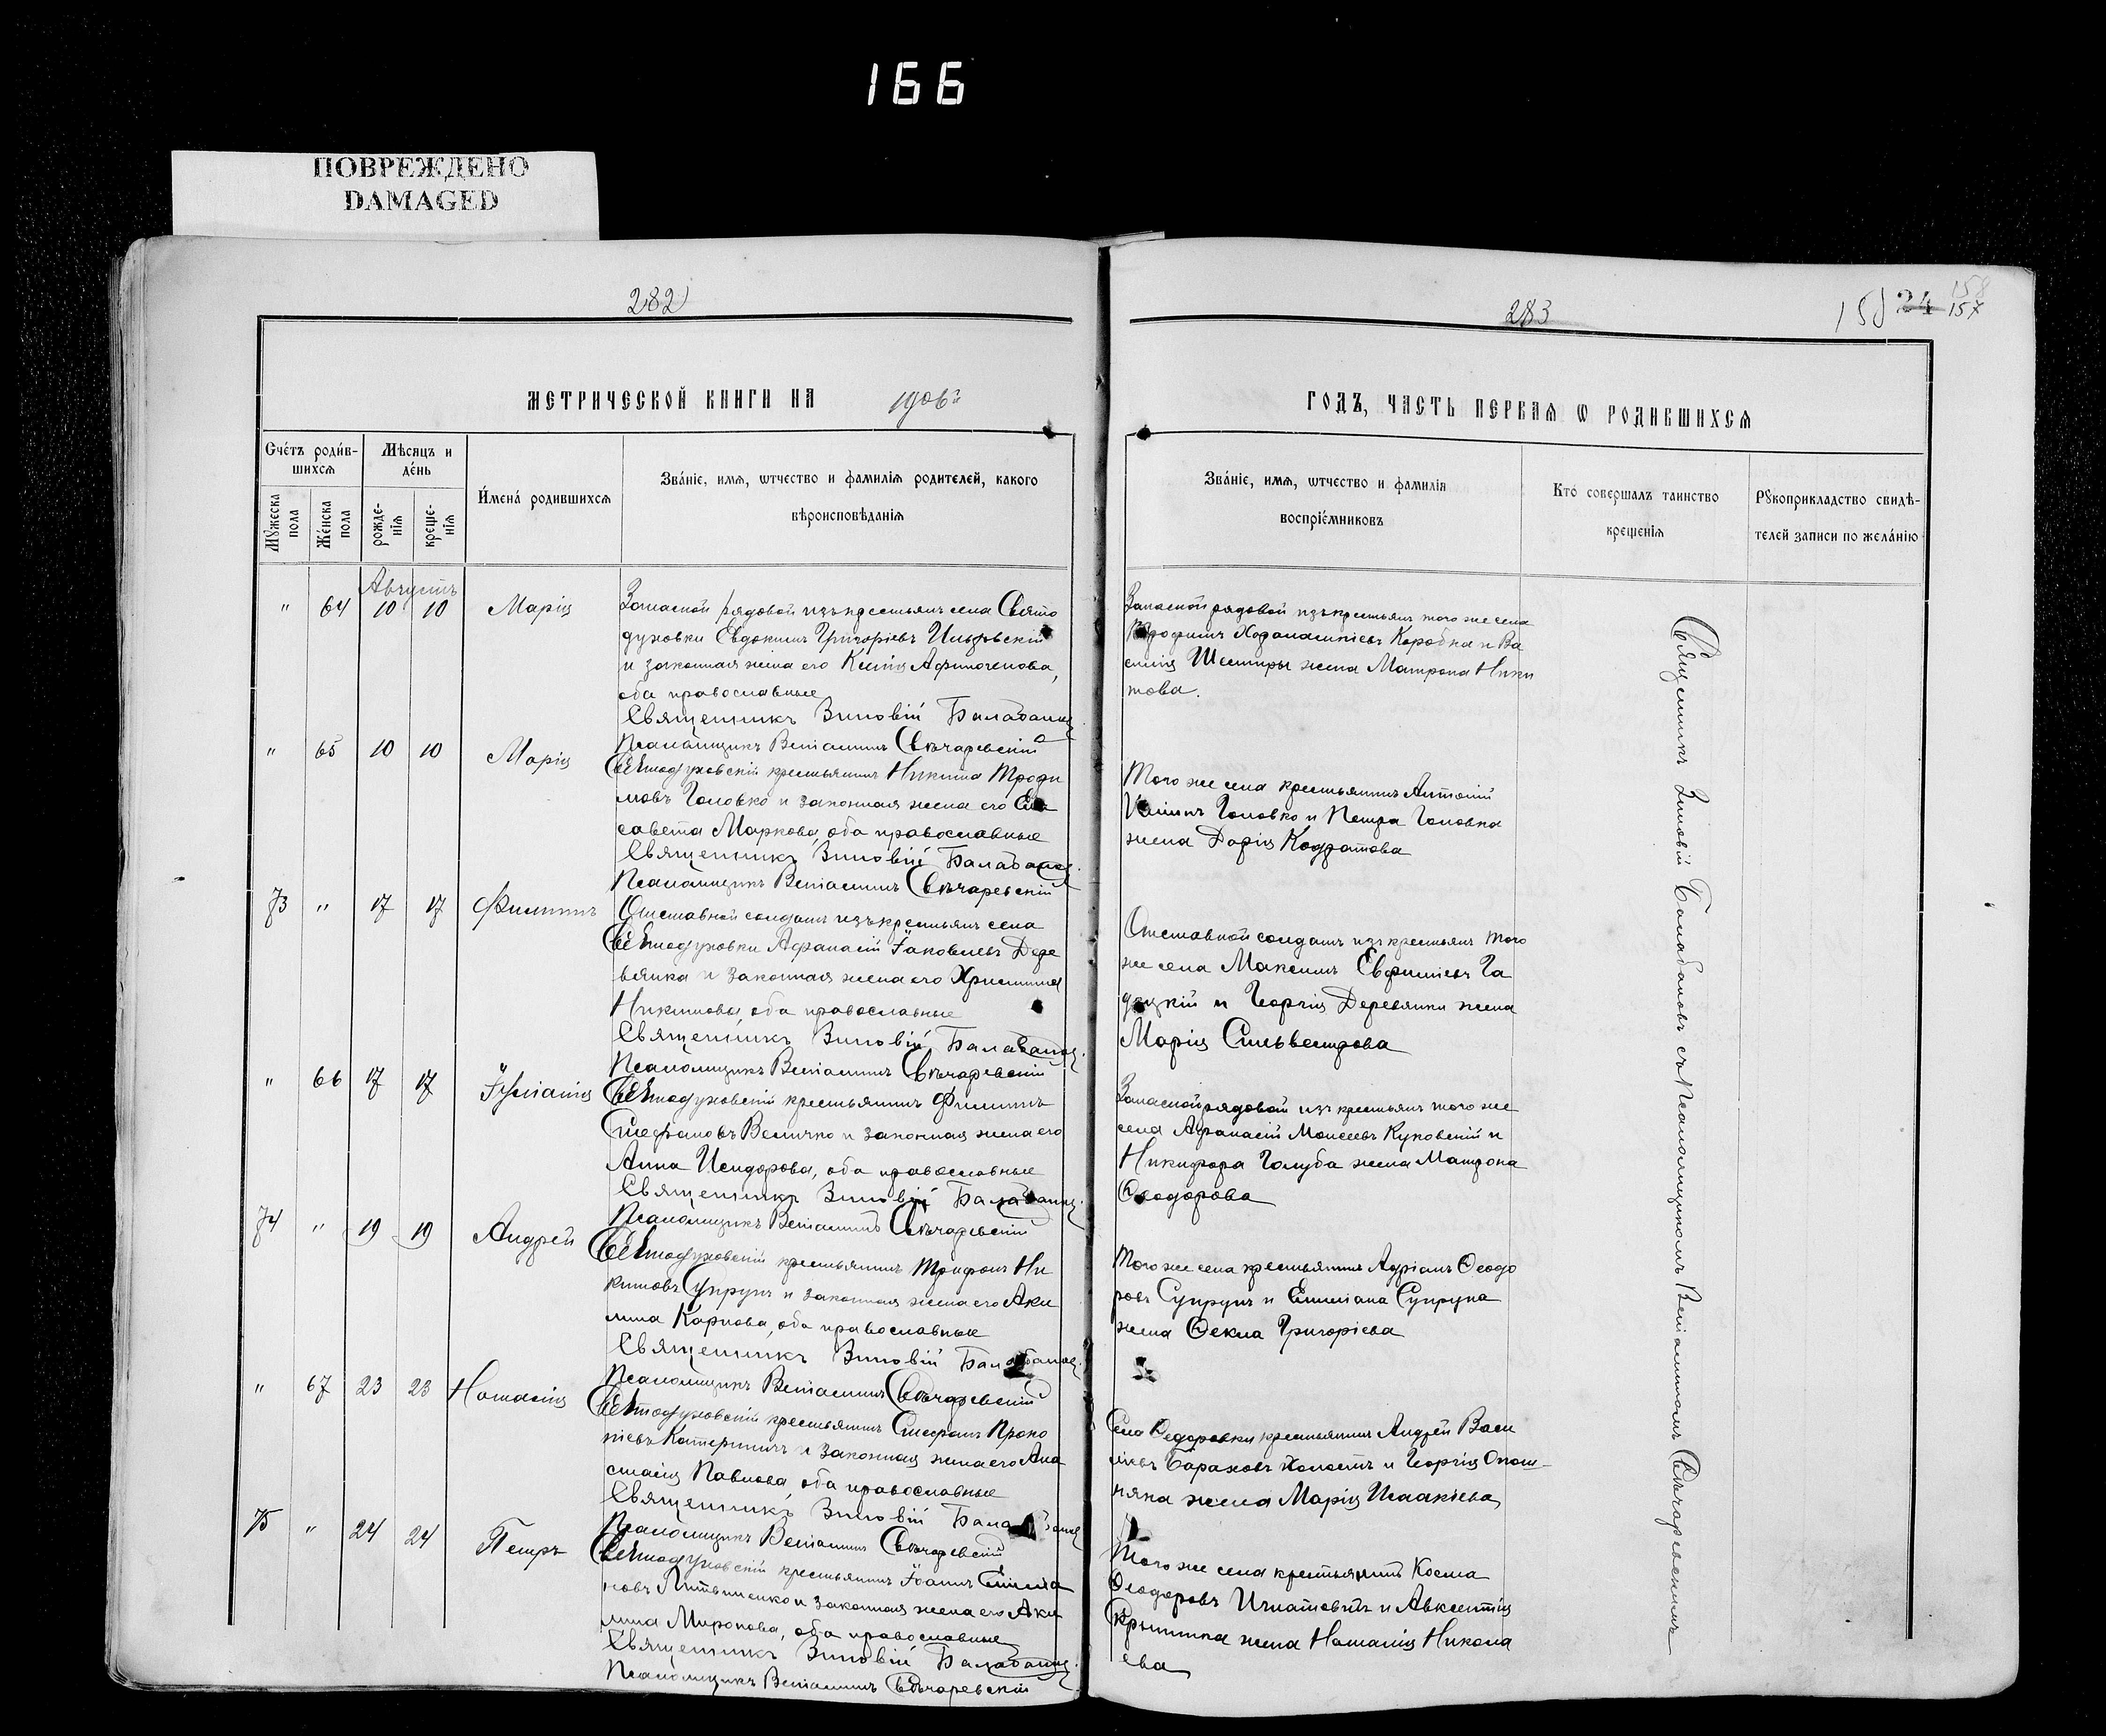 166
ПОВРЕЖДЕНО
DAMAGED
282
283
24
158
157
МЕТРИЧЕСКОЙ КНИГИ НА 1906й
ГОДЪ, ЧАСТЬ ПЕРВАЯ Ѡ РОДИВШИХСЯ
Счетъ родив-
шихся
Мѣсяцъ и
день
Мужеска пола
Женска пола
рожде-
нія
креще-
нія
Имена родившихся
Званіе, имя, ѿчество и фамилія родителей, какого
вѣроисповѣданія
Званіе, имя, ѿчество и фамилія
воспріемниковъ
Кто совершалъ таинство
крещенія
Рукоприкладство свидѣ-
телей записи по желанію
Августъ
" 64 10 10 Марія
Запасной рядовой изъ крестьянъ села Свято
духовки Евдокимъ Григоріевъ
и законная жена его Афиногенова,
оба православные
Священникъ Зиновій Балабановъ
Псаломщикъ Веніаминъ Свѣчаревскій
Запасной рядовой изъ крестьянъ того же села
Коробка и Ва
силія Шестиры жена Матрона Ники
това.
" 65 10 10 Марія
Святодуховскій крестьянинъ Никита Трофи
мовъ Головко и законная жена его Ели
савета Маркова, оба православные
Священникъ Зиновій Балабановъ
Псаломщикъ Веніаминъ Свѣчаревскій
Того же села крестьянинъ Антоній
Головко и Петра Головка
жена Дарія Кодратова
73 " 17 17 Филиппъ
Отставной солдатъ изъ крестьянъ села
Святодуховки Афанасій Іаковлевъ Дере
вянка и законная жена его Христина
Никитова, оба православные
Священникъ Зиновій Балабановъ
Псаломщикъ Веніаминъ Свѣчаревскій
Отставной солдатъ изъ крестьянъ того
же села Максимъ Евфиміевъ Га
дяцкій и Георгія Деревянки жена
Марія Сильвестрова
" 66 17 17 Іуліанія
Святодуховскій крестьянинъ Филиппъ
Стефановъ Величко и законная жена его
Анна Исидорова, оба православные
Священникъ Зиновій Балабановъ
Псаломщикъ Веніаминъ Свѣчаревскій
Запасной рядовой изъ крестьянъ того же
села Афанасій Моисеевъ Куковскій и
Никифора Голуба жена Матрона
Ѳеодорова
74 " 19 19 Андрей
Святодуховскій крестьянинъ Трифонъ Ни
китовъ Супрунъ и законная жена его Аки
лина Карпова, оба православные
Священникъ Зиновій Балабановъ
Псаломщикъ Веніаминъ Свѣчаревскій
Того же села крестьянинъ Адріанъ Ѳеодо
ровъ Супрунъ и Емиліана Супруна
жена Ѳекла Григоріева
" 67 23 23 Наталія
Святодуховскій крестьянинъ Стефанъ Проко
піевъ Катериничъ и законная жена его Ана
стасія Павлова, оба православные
Священникъ Зиновій Балабановъ
Псаломщикъ Веніаминъ Свѣчаревскій
Села Ѳедоровки крестьянинъ Андрей Васи
ліевъ Бараховъ холостъ и Георгія Опош-
няка жена Марія Исаакіева
75 " 24 24 Петръ
Святодуховскій крестьянинъ Іоаннъ Емилiа
новъ Литвиненко и законная жена его Аки
лина Миронова, оба православные
Священникъ Зиновій Балабановъ
Псаломщикъ Веніаминъ Свѣчаревскій
Того же села крестьянинъ Косма
Ѳеодоровъ Игнатовичъ и Авксентія
жена Наталія Никола
ева
Священникъ Зиновій Балабановъ съ Псаломщикомъ Веніаминомъ Свѣчаревскимъ